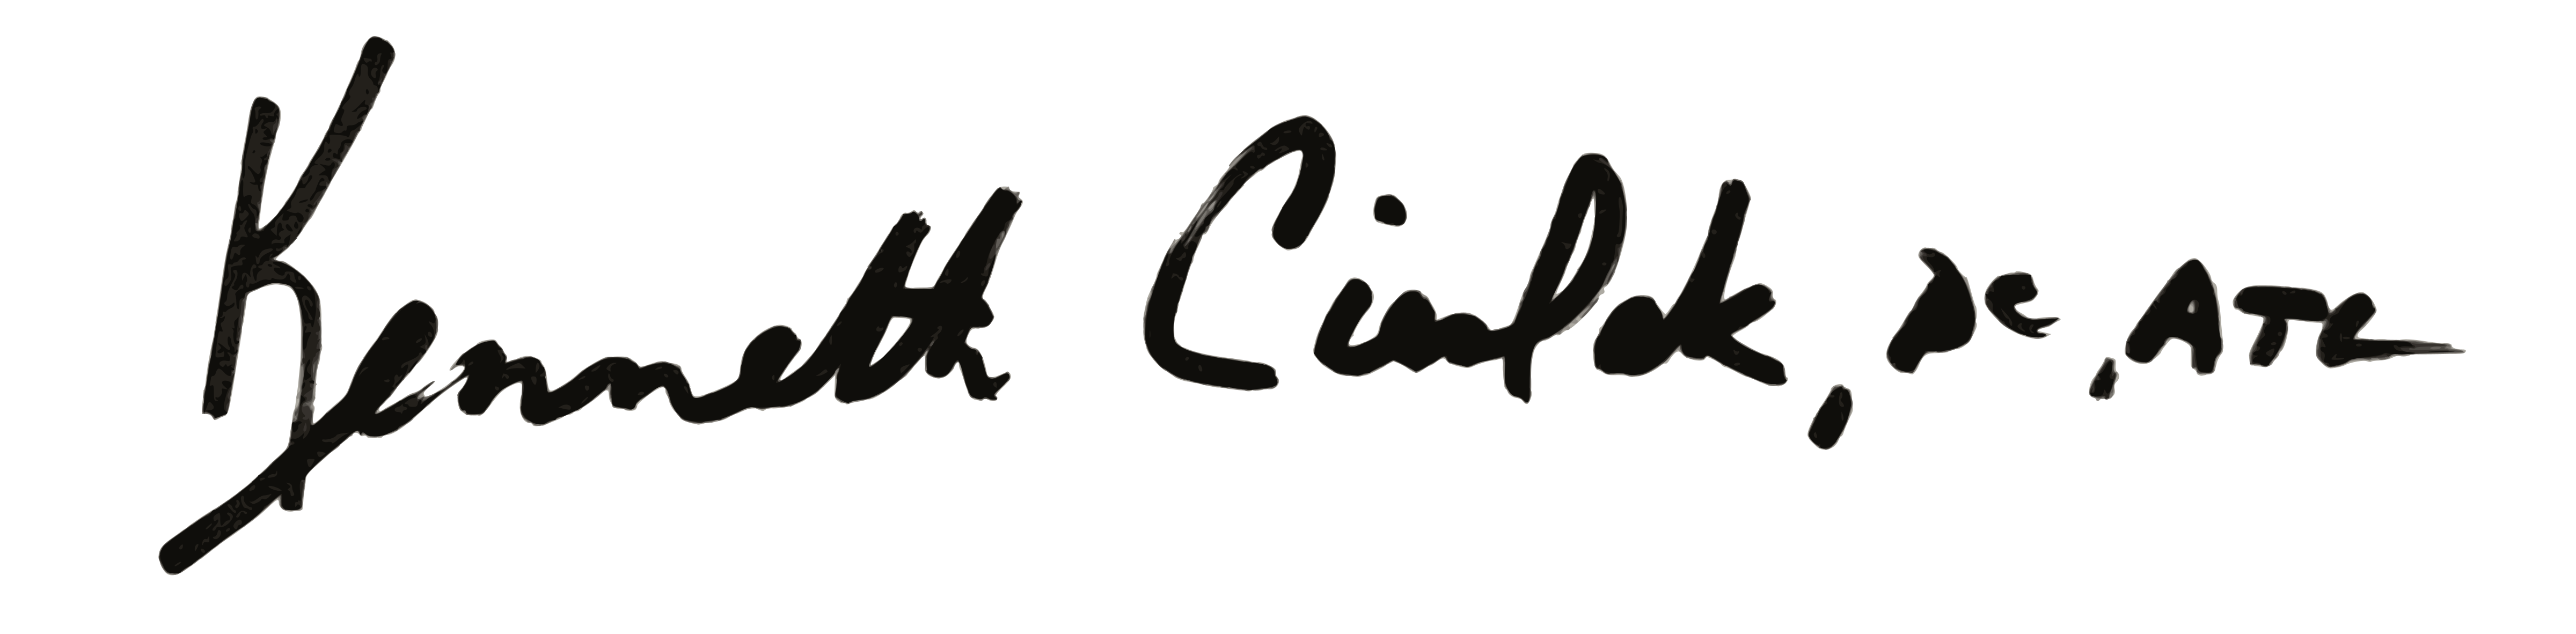 Kenneth Cieslak, DC, ATC